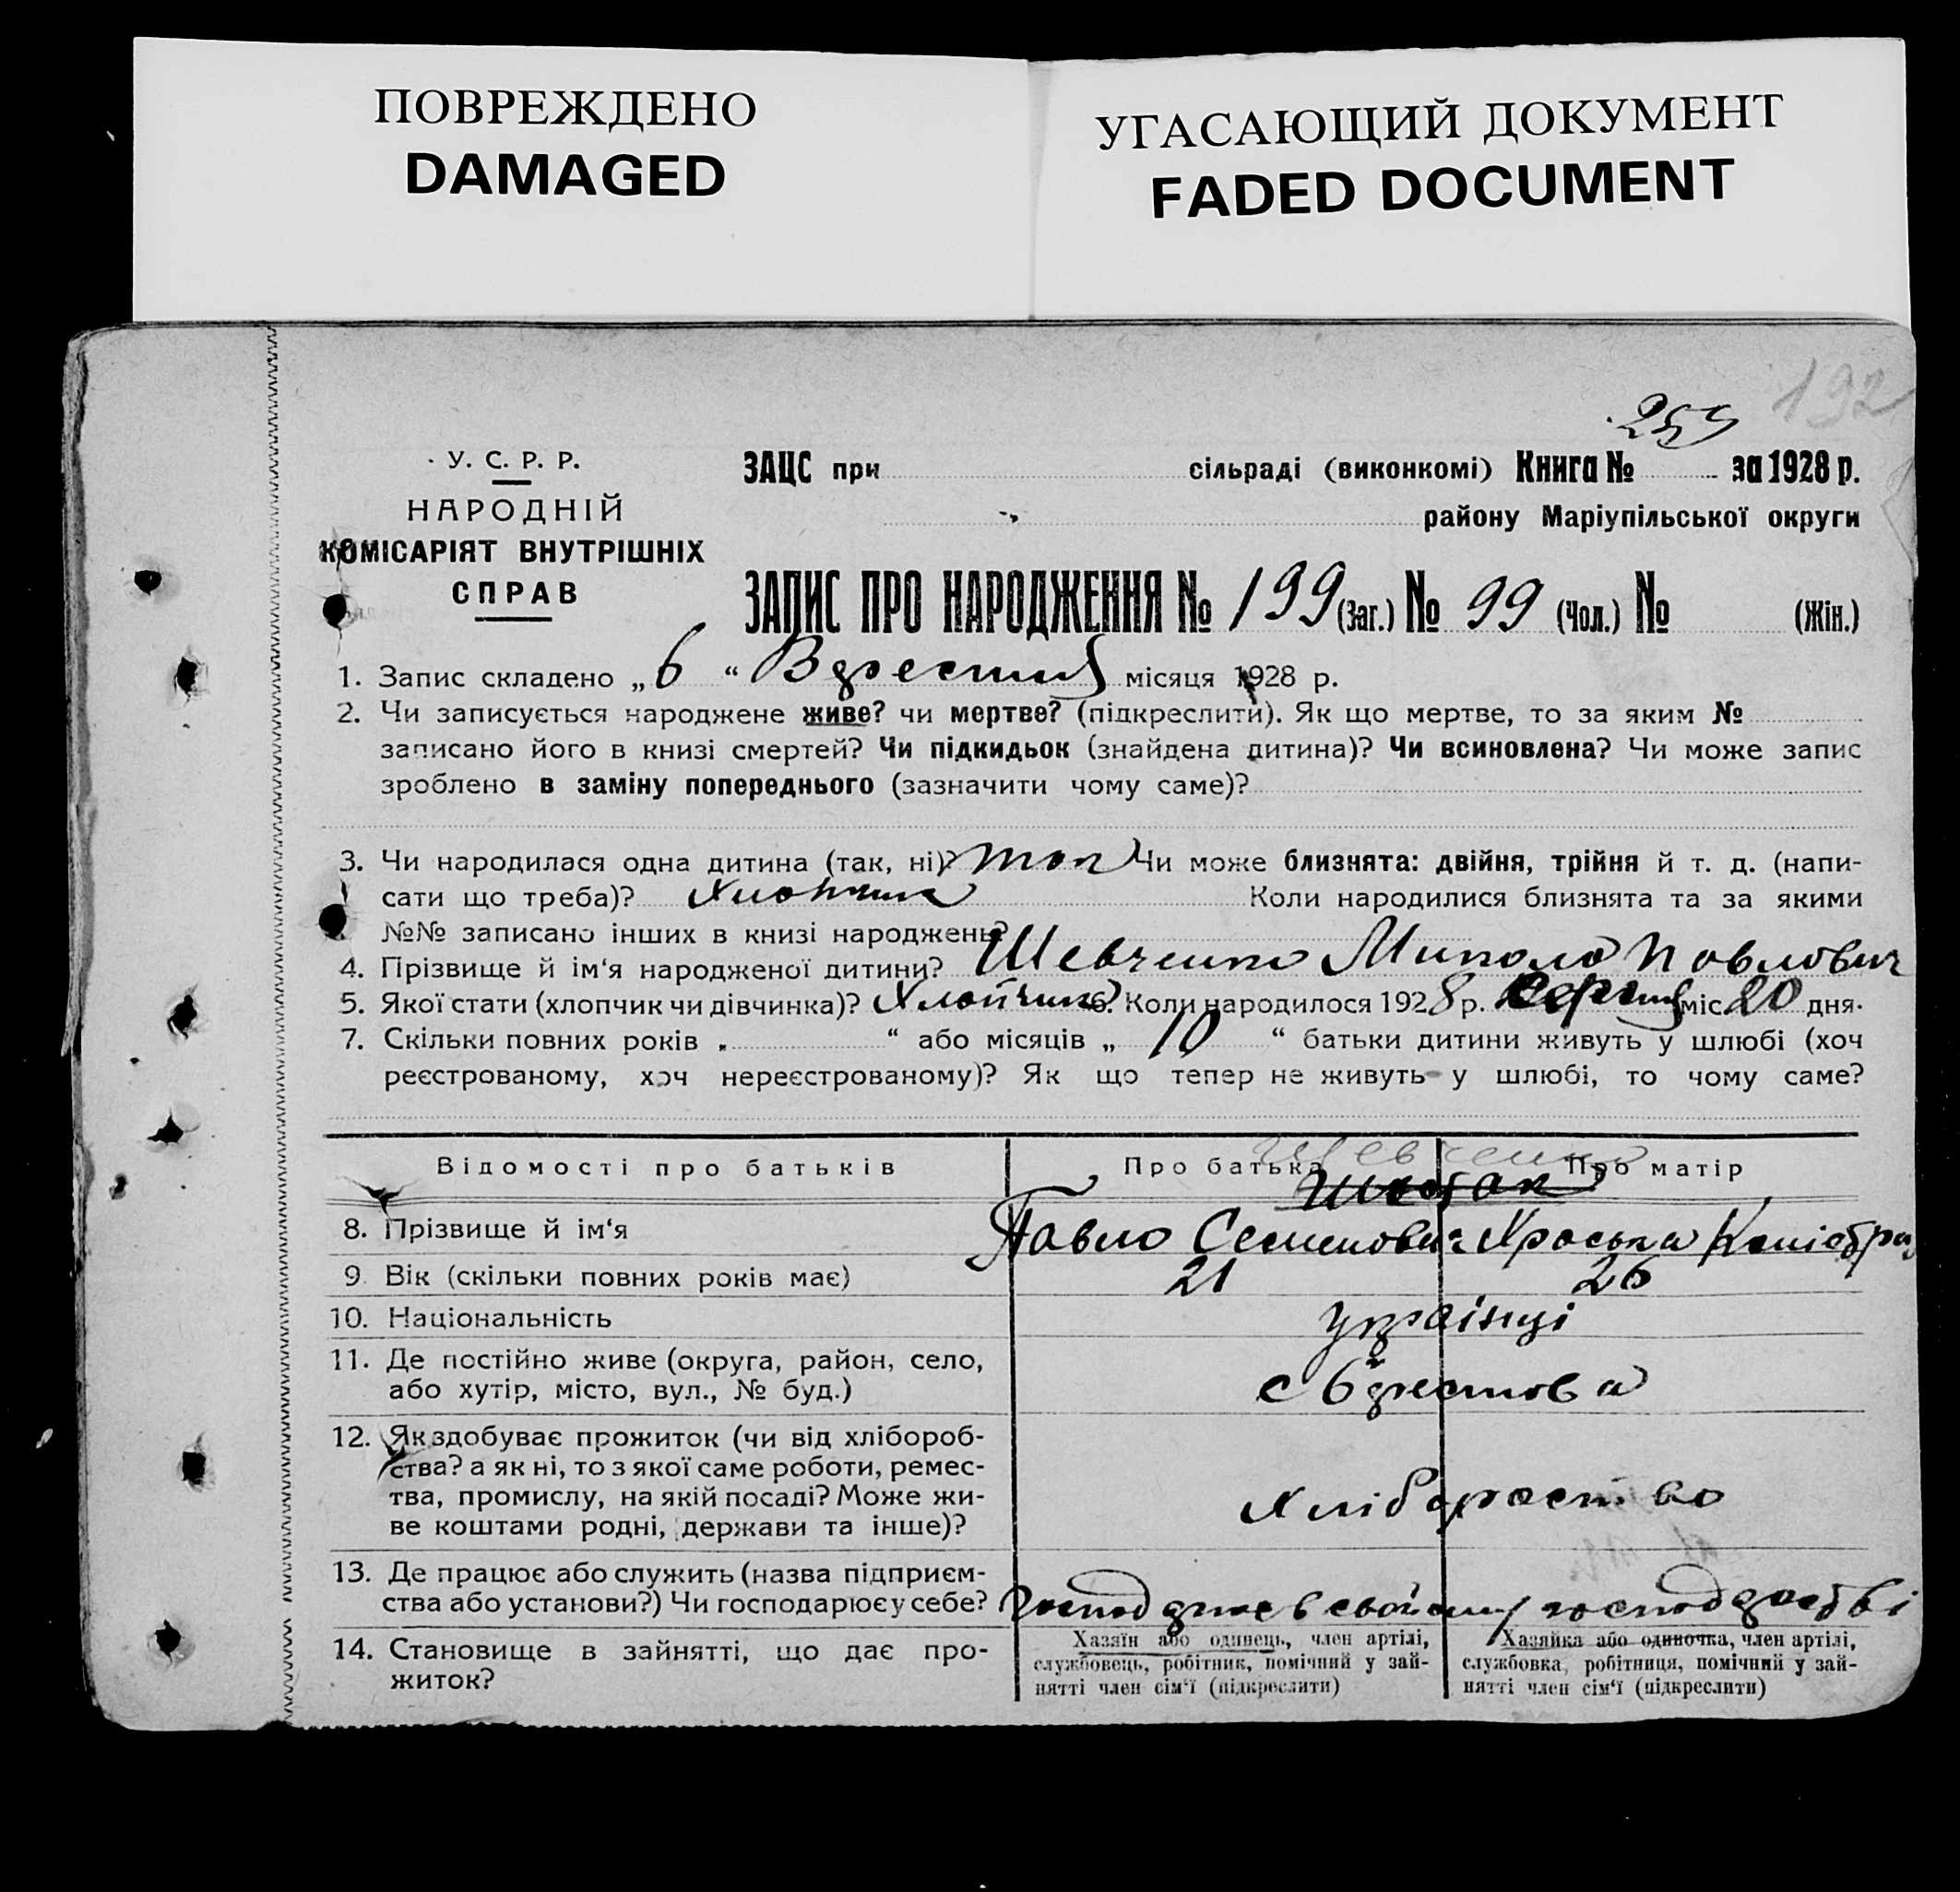 ПОВРЕЖДЕНО
DAMAGED
УГАСАЮЩИЙ ДОКУМЕНТ
FADED DOCUMENT
192
259
У. С. Р. Р.
НАРОДНІЙ
КОМІСАРІЯТ ВНУТРІШНІХ
СПРАВ
ЗАЦС при сільраді (виконкомі) Книга № за 1928 р.
району Маріупільської округи
ЗАПИС ПРО НАРОДЖЕННЯ № 199 (Заг.) № 99 (Чол.) № (Жін.)
1. Запис складено „ 6 “ місяця 1928 р.
2. Чи записується народжене живе? чи мертве? (підкреслити). Як що мертве, то за яким №
записано його в книзі смертей? Чи підкидьок (знайдена дитина)? Чи всиновлена? Чи може запис
зроблено в заміну попереднього (зазначити чому саме)?
3. Чи народилася одна дитина (так, ні)? так Чи може близнята: двійня, трійня й т. д. (напи-
сати що треба)? Хлопчик Коли народилися близнята та за якими
№№ записано інших в книзі народжень?
4. Прізвище й ім‘я народженої дитини? Шевченко Микола Павлович
5. Якої стати (хлопчик чи дівчинка)? Хлопчик 6. Коли народилося 1928 р. Серпня міс. 20 дня.
7. Скільки повних років „ “ або місяців „ 10 “ батьки дитини живуть у шлюбі (хоч
реєстрованому, хоч нереєстрованому)? Як що тепер не живуть у шлюбі, то чому саме?
Шевченко
Відомості про батьків Про батька Про матір
8. Прізвище й ім‘я Павло Семенович
9. Вік (скільки повних років має) 21 26
10. Національність українці
11. Де постійно живе (округа, район, село,
або хутір, місто, вул., № буд.)
12. Як здобуває прожиток (чи від хлібороб-
ства? а як ні, то з якої саме роботи, ремес-
тва, промислу, на якій посаді? Може жи-
ве коштами родні, держави та інше)?
13. Де працює або служить (назва підприєм-
ства або установи?) Чи господарює у себе?
14. Становище в зайнятті, що дає про-
житок?
Хазяїн або одинець, член артілі,
службовець, робітник, помічний у зай-
нятті член сім‘ї (підкреслити)
Хазяйка або одиночка, член артілі,
службовка, робітниця, помічний у зай-
нятті член сім‘ї (підкреслити)